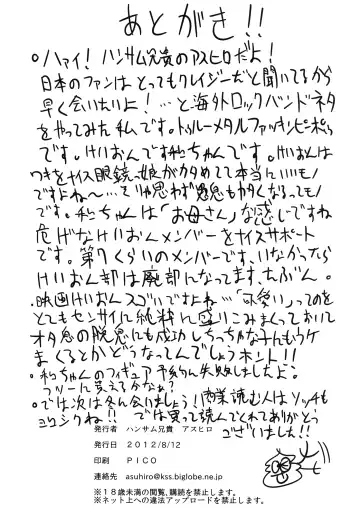 あとがき!!
○ハァイ! ハンサム兄貴のアスヒロだよ!
日本のファンはとってもクレイジーだと聞いてるから
早く会いたいよ!…と海外ロックバンドネタ
をやってみた私です。トゥルーメタルファッキンピポゥ
です。けいおんです和ちゃんです。けいおんは
つきをナイス眼鏡っ娘がカタめてて本当にいいモノ
ですよね〜…そりゃ思わず愚息もカタくなるってモノ
です。和ちゃんは「お母さん」な感じですね
危げなけいおんメンバーをナイスサポート
です。第7くらいのメンバーです、いなかったら
けいおん部は廃部になってます、たぶん。
・映画けいおんスゴいですよね…「不安い」ってのを
とてもセンサイに純粋に盛りこみまくっておいて
オタ息の脱悪にも成功しちっちゃな子にもウケ
まくるとかどうなってんでしょうホント!!
○和ちゃんのフィギュア予約ん失敗しましたよ。
フツーに買えてかなぁ?
○では次は冬ん会いましょう! 商業読む人はソッチも
ヨロシクね!! では買って読んでくれてありがとう
ございました!!
発行者 ハンサム兄貴 アスヒロ
発行日 2012/8/12
印刷 PICO
連絡先 asuhiro@kss.biglobe.ne.jp
※18歳未満の閲覧、購読を禁止します。
※ネット上への違法アップロードを禁止します。